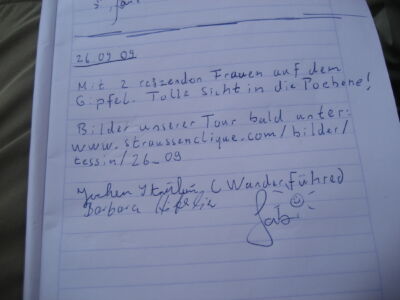 26 09 09
Mit 2 reizenden Frauen auf dem
Gipfel. Tolle Sicht in die Poebene!
Bilder unserer Tour bald unter:
www.straussenclique.com/bilder/
tessin/26_09
Jochen (Wanderführer)
Barbara
Gabi